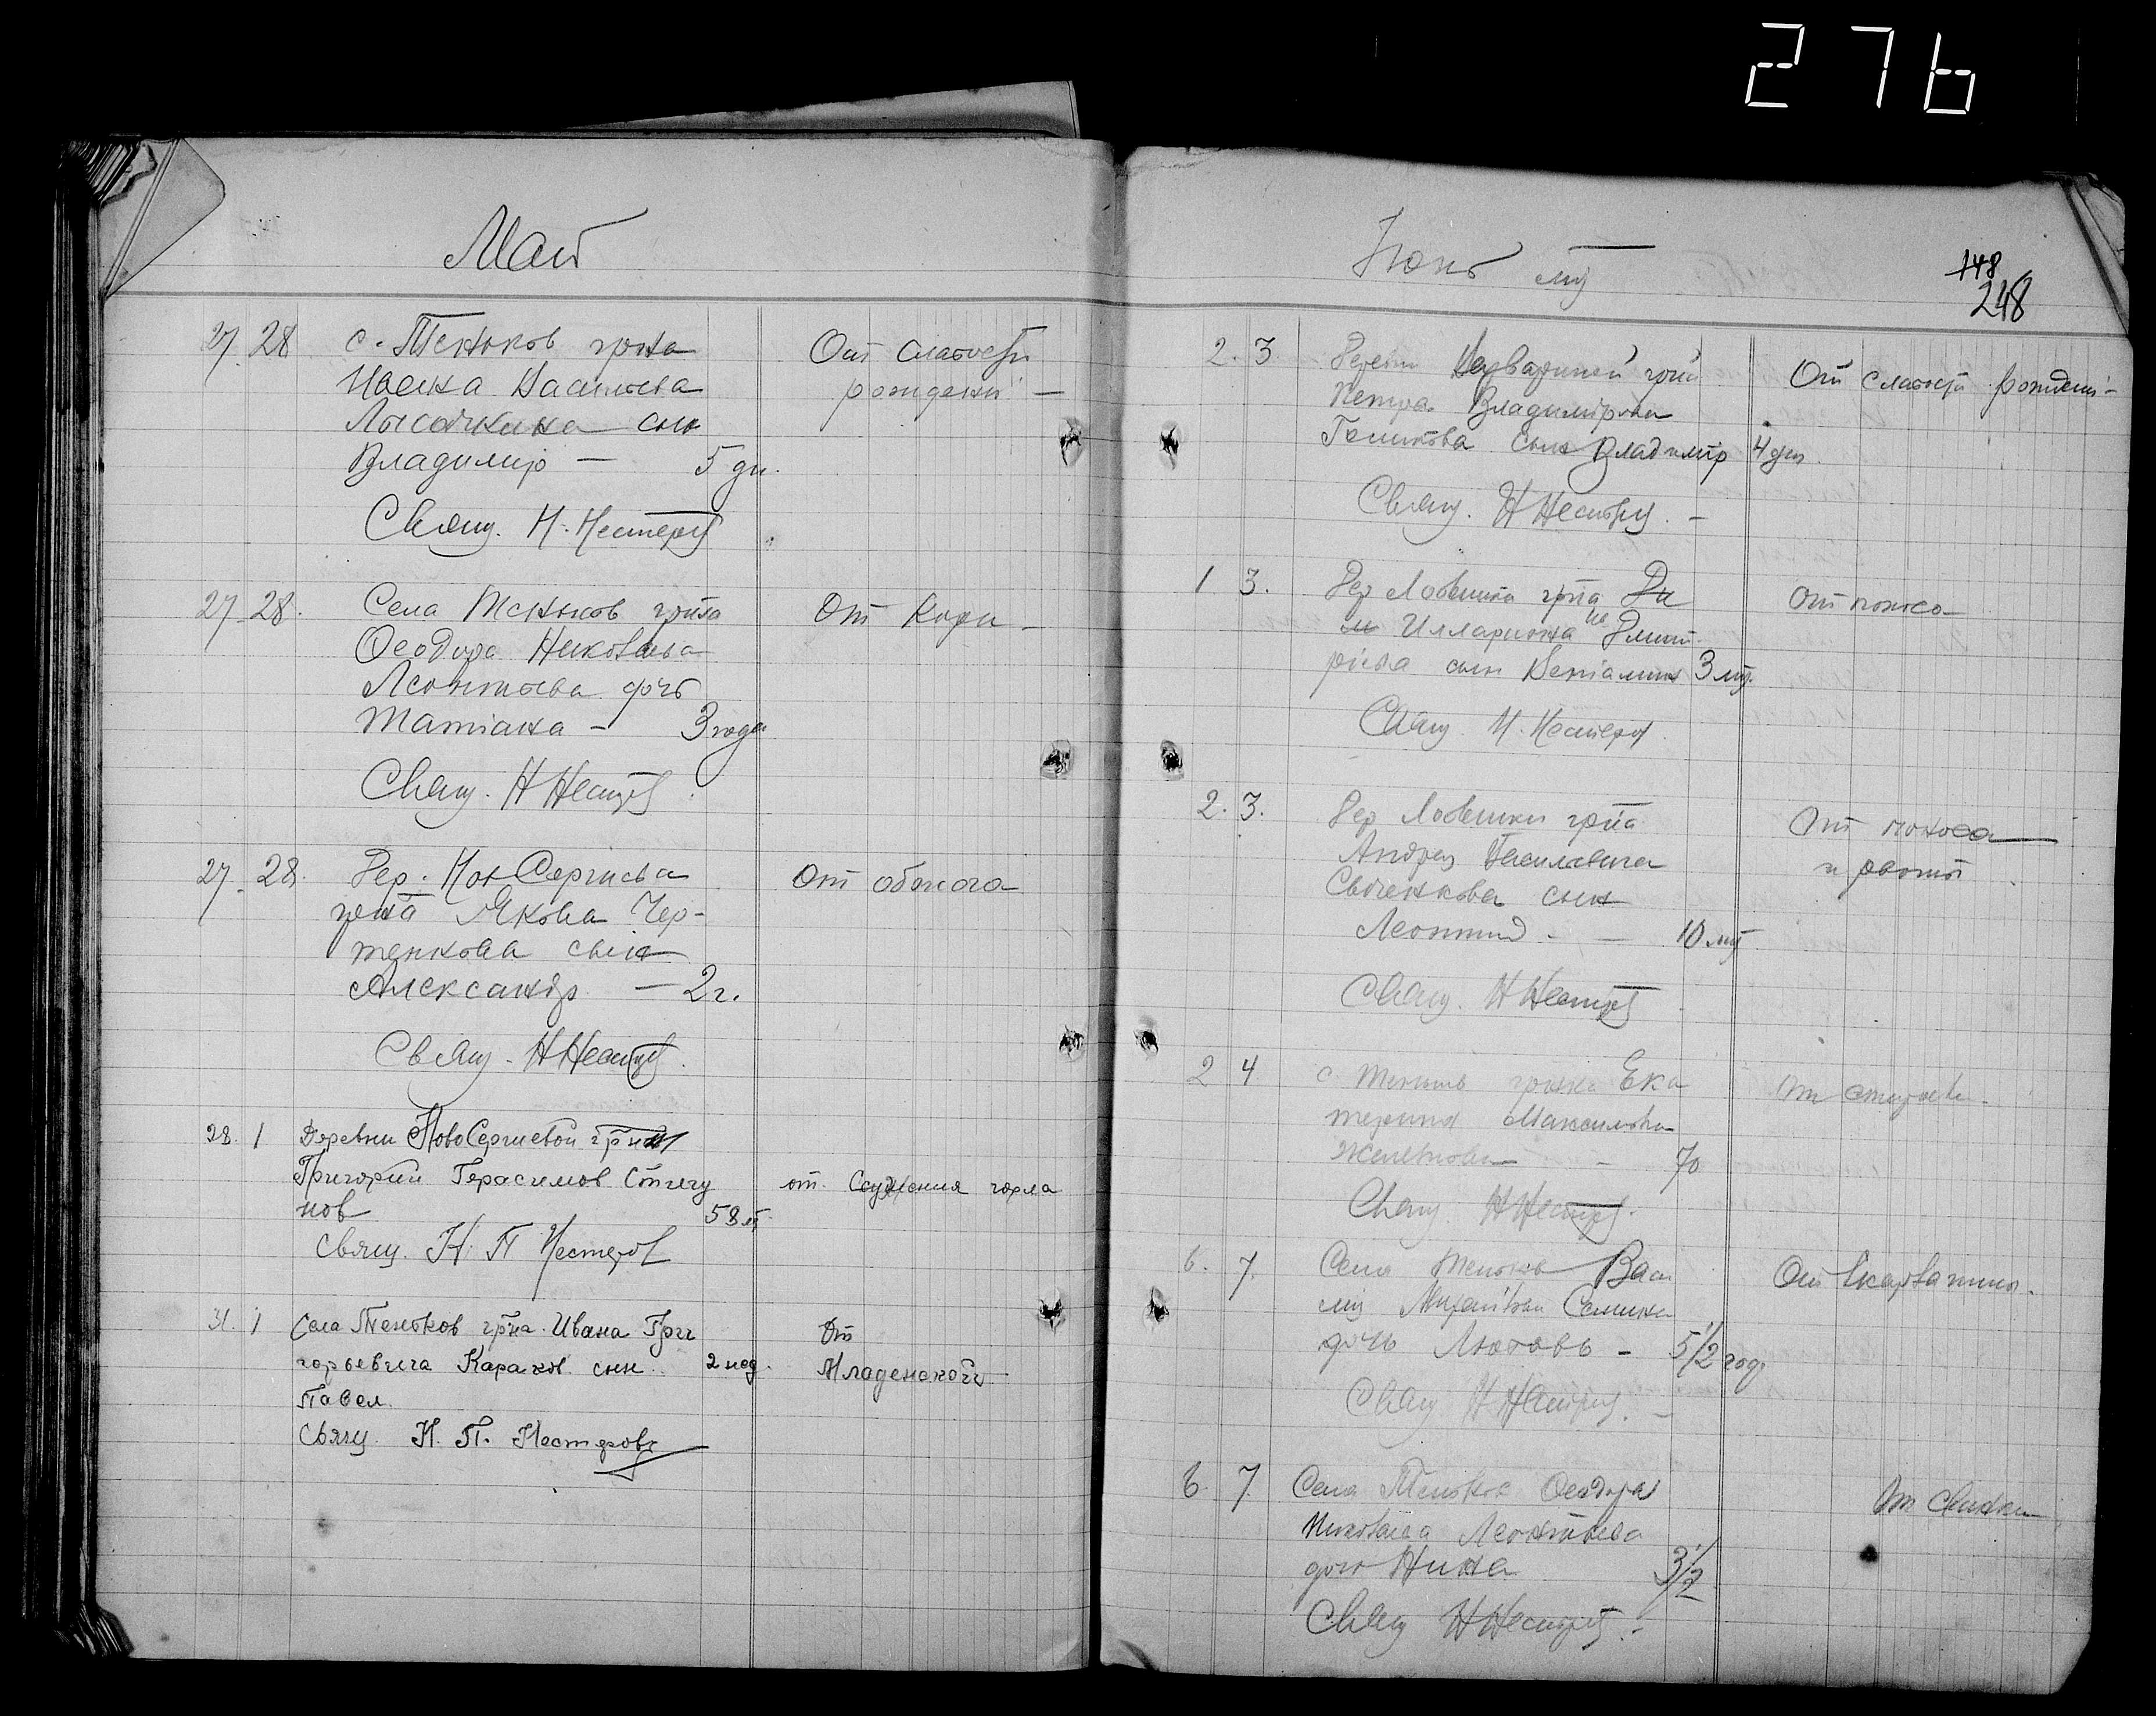 276
Май
27. 28 с. Теньков гр-на
Ивана Васильева
Лысочкина сын
Владимир — 5 дн.
От слабости
рождений —
Свящ. Н. Нестеров
27 28. Села Теньков гр-на
Феодора Николаева
Леонтьева дочь
Татіана — 3 года
От Кори —
Свящ. Н Нестеров
27 28. Дер. Ново Сергиева
гр-на Якова Чер-
тенкова сын
Александр — 2 г.
От обжога
Свящ. Н Нестеров
28. 1 Деревни Ново Сергиевой гр-н
Григорий Герасимов
нов 58 л.
от Сужения горла
Свящ. Н. П Нестеров
31. 1 Села Теньков гр-на Ивана Гри
горьевича сын 2 нед.
Павел.
От
Младенской
Свящ. Н. П. Нестеров
Июнь м-ц
148
248
2. 3 Деревни гр-на
Петра Владимірова
сын Владимір 4 дн.
От слабости рождені-
Свящ. Н Нестеров. —
1 3. Дер гр-на Ди
м Иллариона Дмит-
ріева сын Веніамин 3 м-ц.
От поноса
Свящ. Н. Нестеров
2. 3. Дер гр-на
Андрея Васильевича
сын
Леонтид — 10 м-ц
От поноса
и рвоты
Свящ. Н Нестеров
2 4 с. Теньков гр-нка Ека
терина Максимова
70
От старости
Свящ Н Нестеров.
6. 7. Села Теньков Васи
лия
дочь Любовь — 5 1/2 год
От Скарлатины.
Свящ Н Нестеров. —
6. 7 Села Теньков Феодора
Николаева Леонтьева
дочь Нина 3 1/2
От Свинки
Свящ Н Нестеров. —